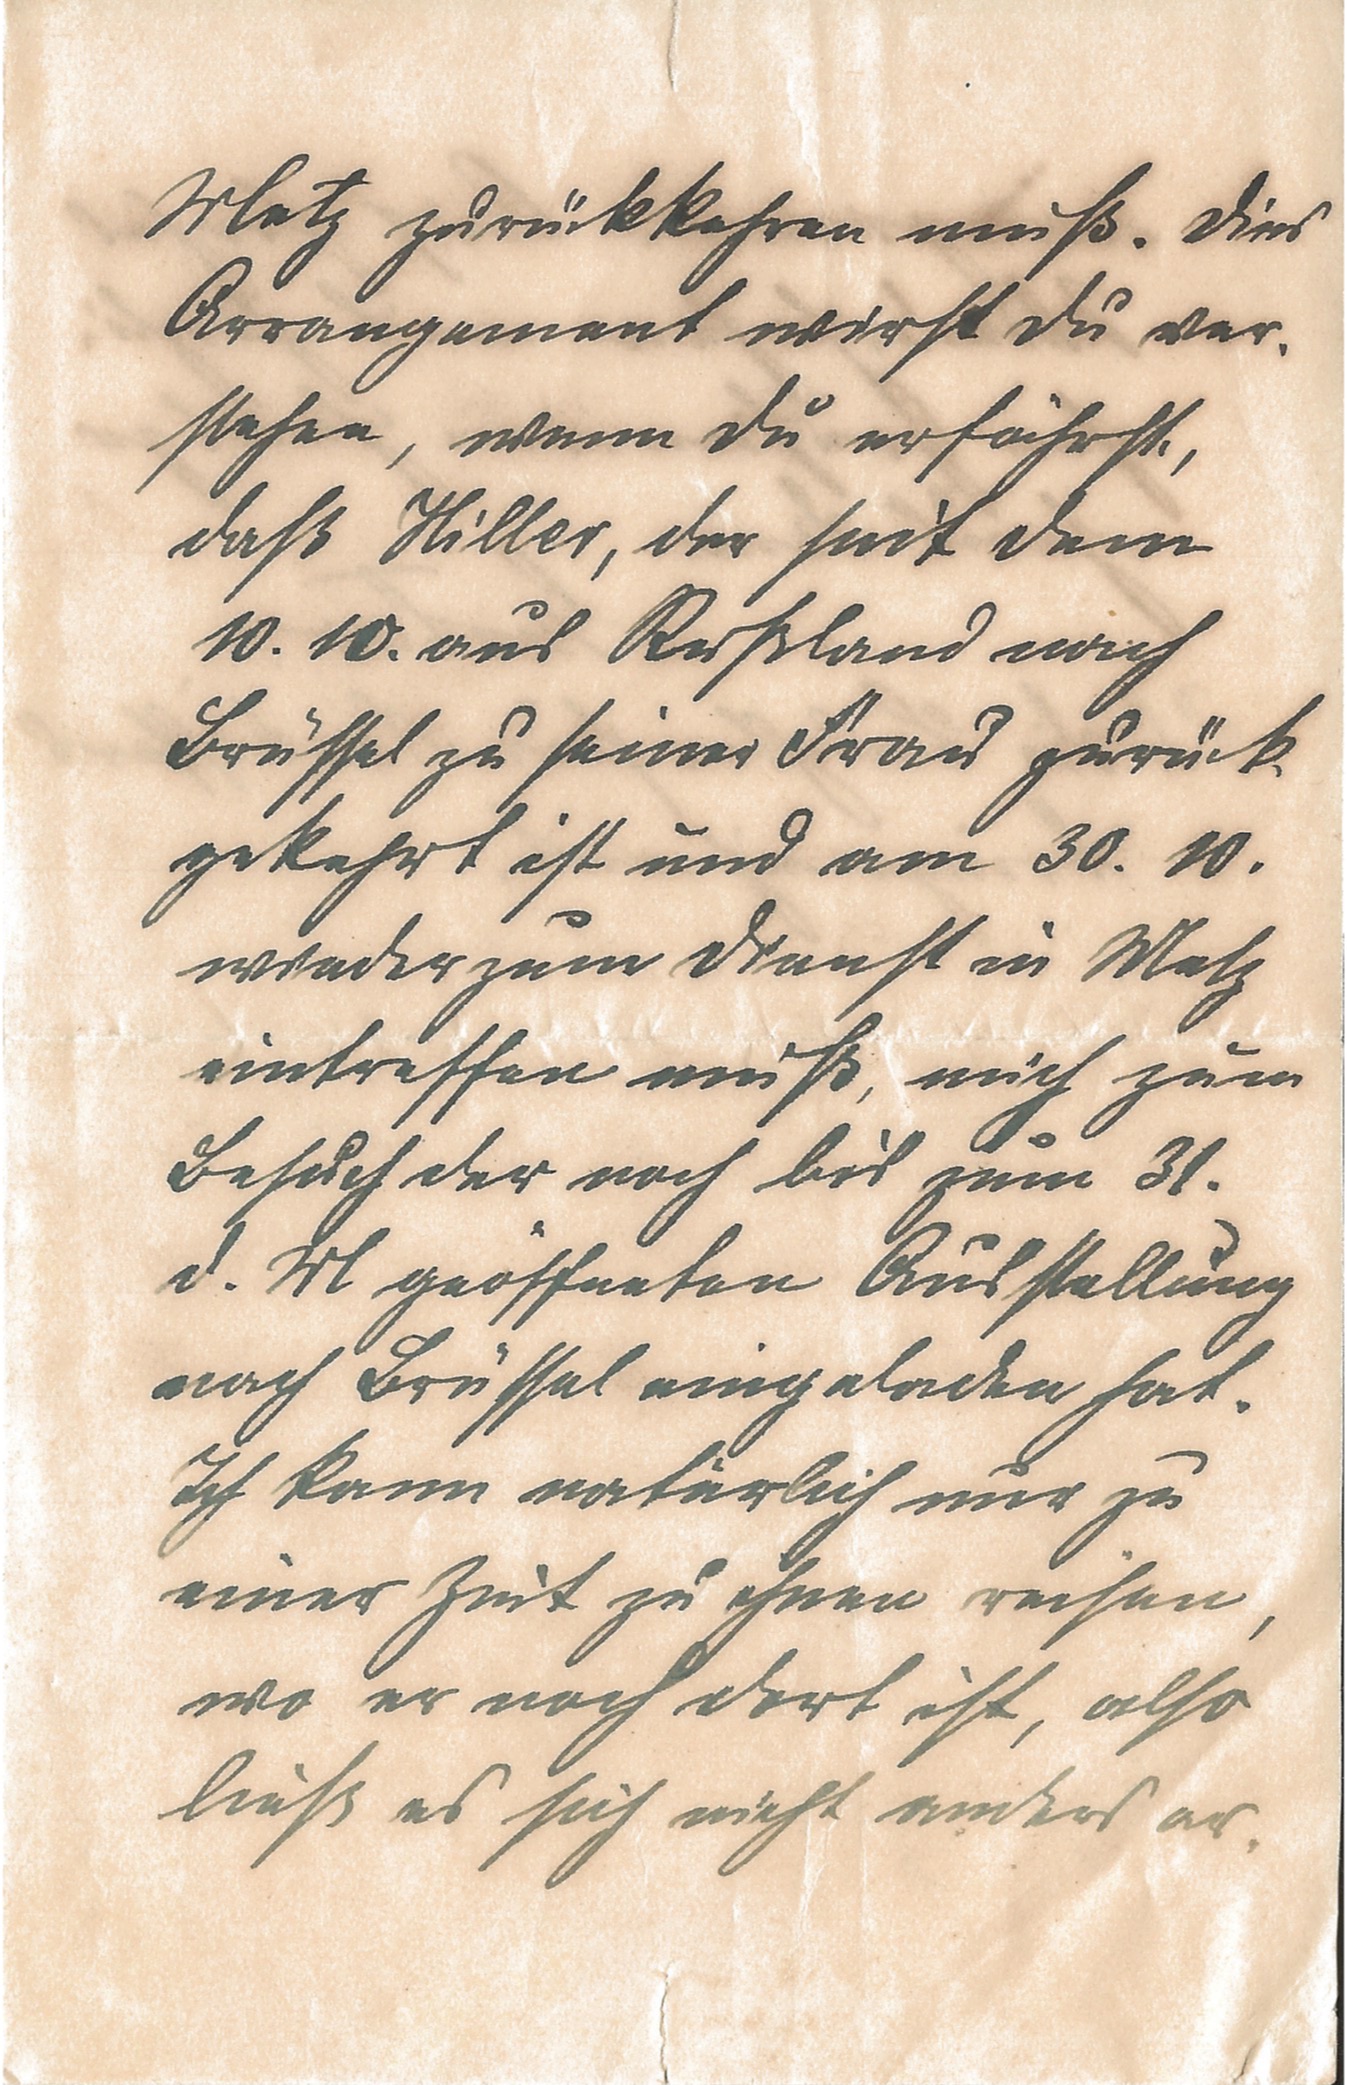 Metz zurückkehren muß. Dies
Arrangement wirst Du ver-
stehen, wenn Du erfährst,
daß Hiller, der seit dem
10. 10. aus Rußland nach
Brüssel zu seiner Frau zurück-
gekehrt ist und am 30. 10.
wieder zum Dienst in Metz
eintreffen muß, mich zum
Besuch der noch bis zum 31.
d. M geöffneten Ausstellung
nach Brüssel eingeladen hat.
Ich kann natürlich nur zu
einer Zeit zu ihnen reisen,
wo er noch dort ist, also
ließ es sich nicht anders ar-